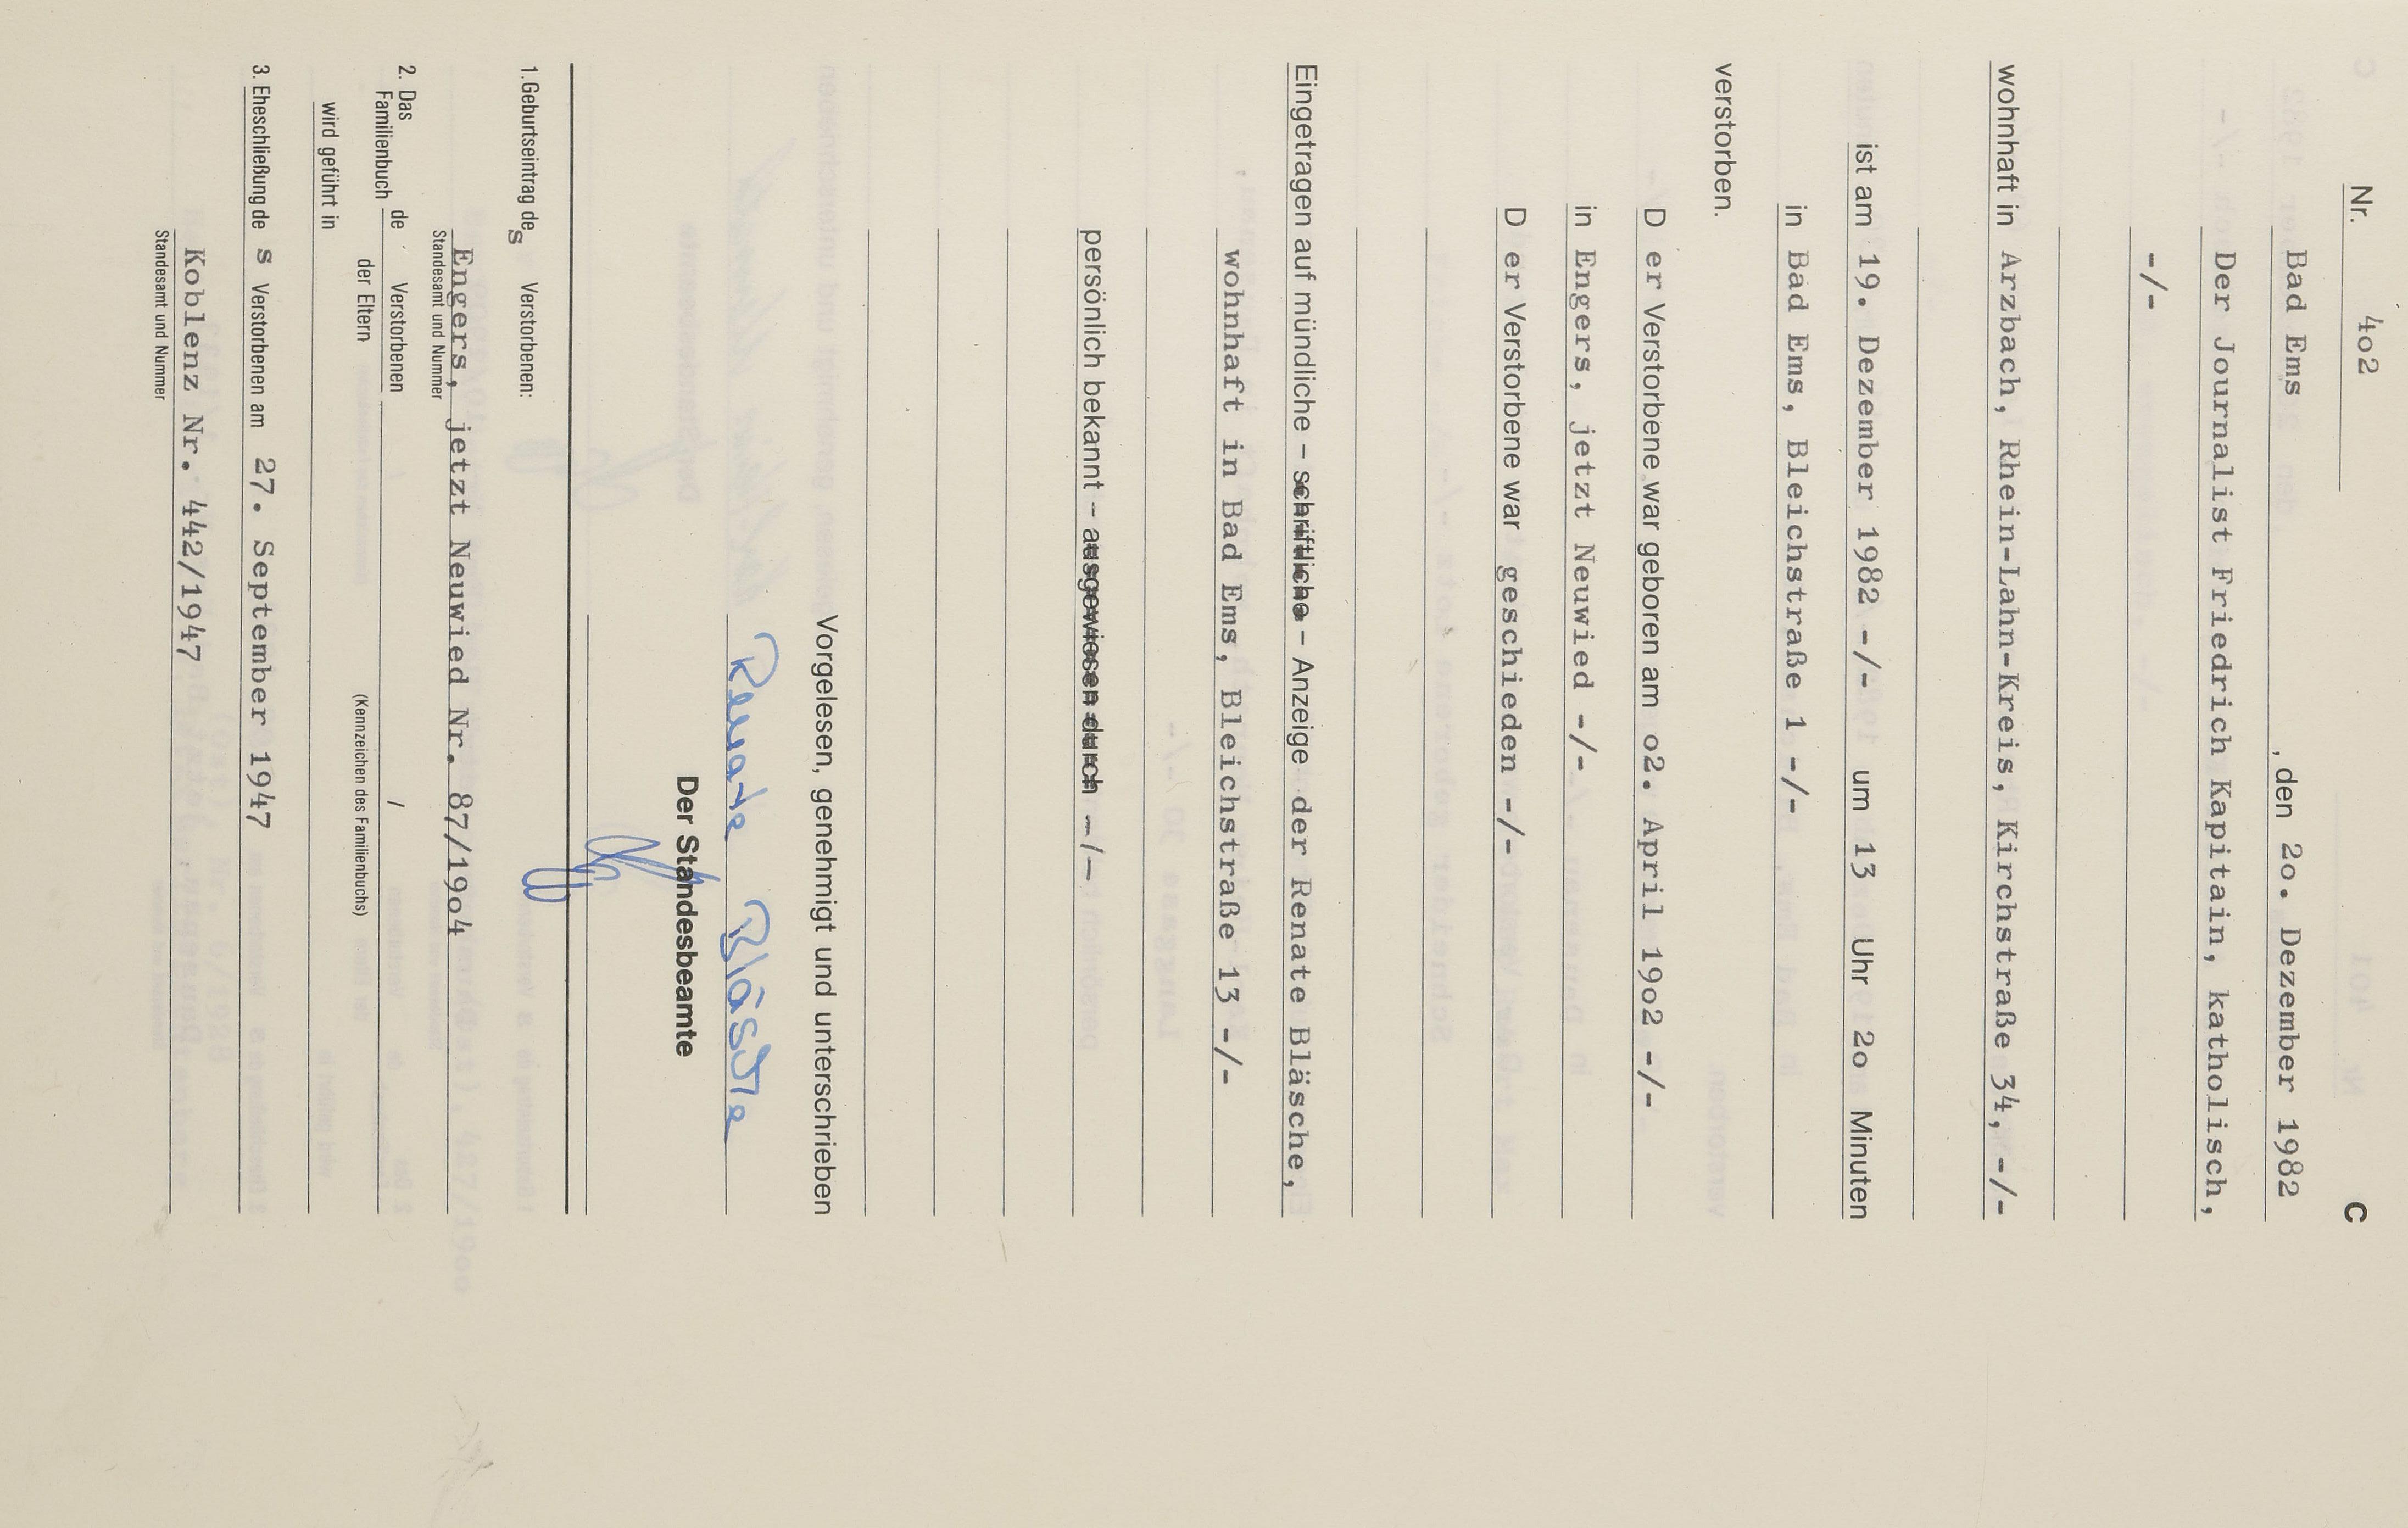 Nr. 4o2 C
Bad Ems , den 2o. Dezember 1982
Der Journalist Friedrich Kapitain, katholisch,
-/-
wohnhaft in Arzbach, Rhein-Lahn-Kreis, Kirchstraße 34, -/-
ist am 19. Dezember 1982 -/- um 13 Uhr 2o Minuten
in Bad Ems, Bleichstraße 1 -/-
verstorben.
D er Verstorbene war geboren am o2. April 19o2 -/-
in Engers, jetzt Neuwied -/-
D er Verstorbene war geschieden -/-
Eingetragen auf mündliche – schriftliche – Anzeige der Renate Bläsche,
wohnhaft in Bad Ems, Bleichstraße 13 -/-
persönlich bekannt – ausgewiesen durch -/-
Vorgelesen, genehmigt und unterschrieben
Renate Bläsche
Der Standesbeamte
1. Geburtseintrag des Verstorbenen:
Engers, jetzt Neuwied Nr. 87/19o4
Standesamt und Nummer
2. Das Familienbuch de Verstorbenen /
der Eltern (Kennzeichen des Familienbuchs)
wird geführt in
3. Eheschließung de s Verstorbenen am 27. September 1947
Koblenz Nr. 442/1947
Standesamt und Nummer